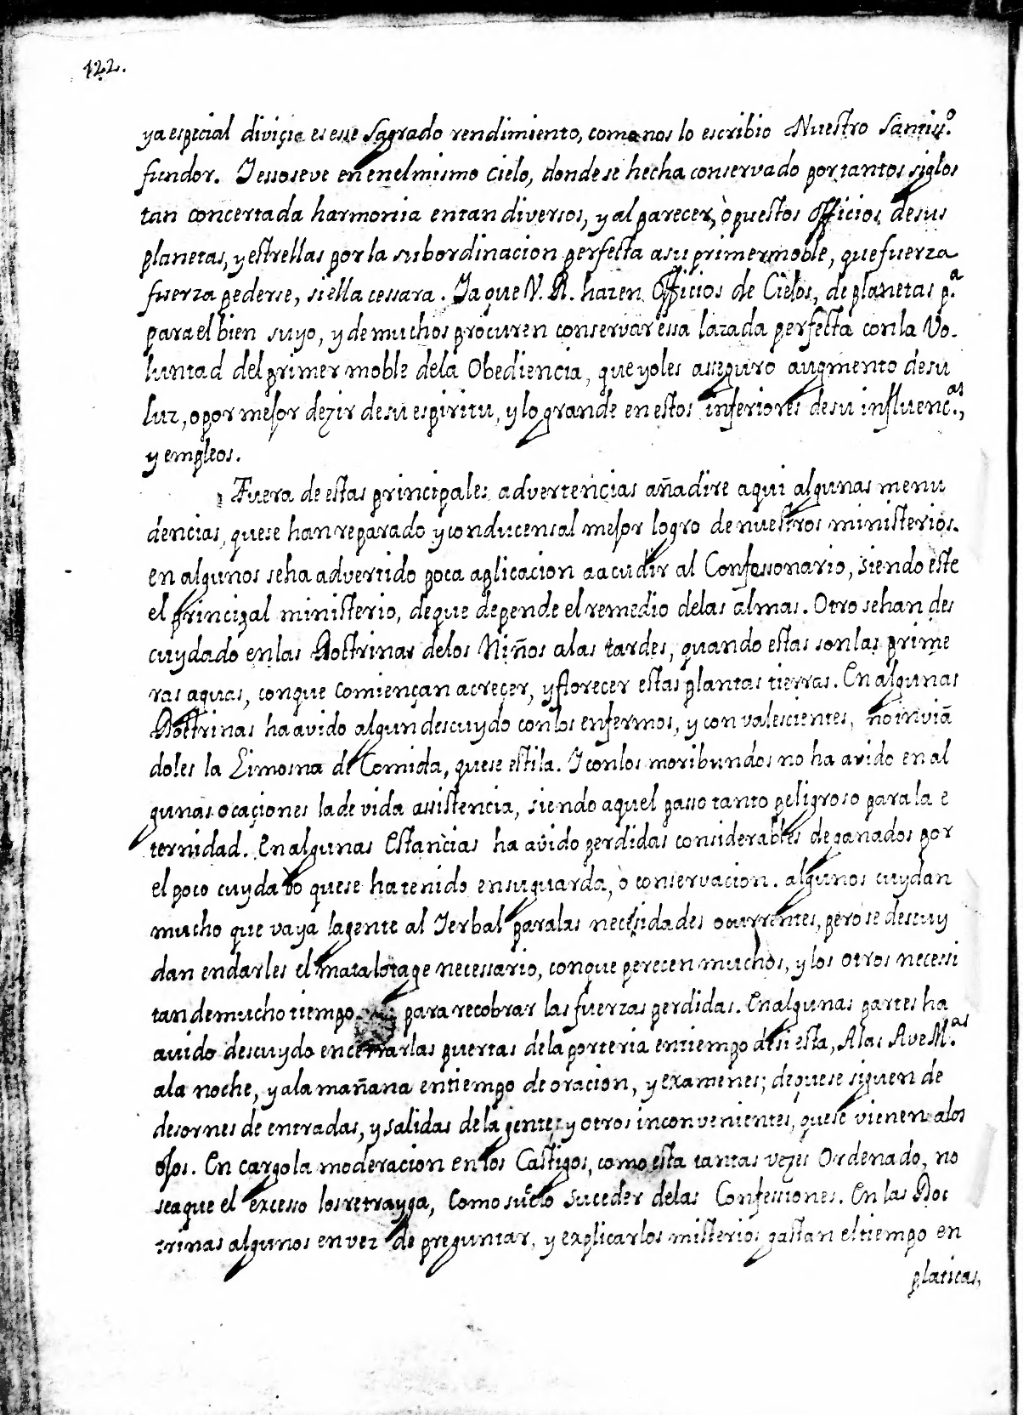 122.
ya especial diviçia es esse sagrado rendimiento, como nos lo escribio Nuestro Santiss.º
fundor. I esso se ve en en el mismo Cielo, donde se hecha conservado por tantos siglos
tan concertada harmonia en tan diversos, y al parecer, òpuestos officios, de sus
planetas, y estrellas por la subordinacion perfecta a su primer moble, que fuerza
fuerza pederse, si ella cessara. Ia que V. R. hazen Officios de Cielos, de planetas p.ª
para el bien suyo, y de muchos procuren conservar essa lazada perfecta con la Vo-
luntad del primer moble de la Obediencia, que yo les asseguro augmento de su
luz, o por mejor dezir de su espiritu, y lo grande en estos inferiores de su influenc.as,
y empleos.
Fuera de estas principales advertencias añadire aqui algunas menu
dencias, que se han reparado y conducensal mejor logro de nuestros ministerios.
en algunos se ha advertido poca aplicacion a acudir al Confessonario, siendo este
el principal ministerio, de que depende el remedio de las almas. Otro se han des
cuydado en las Doctrinas de los Niños a las tardes, quando estas son las prime
ras aguas, con que comiençan a creçer, y florecer estas plantas tierras. En algunas
Doctrinas ha avido algun descuydo con los enfermos, y convalescientes, no inviã
doles la Limosna de Comida, que se estila. I con los moribundos no ha avido en al
gunas ocaçiones la de vida assistencia, siendo aquel passo tanto peligroso para la e
ternidad. En algunas Estancias ha avido perdidas considerables de ganados por
el poco cuydado que se ha tenido en su guarda, ò conservacion. algunos cuydan
mucho que vaya la gente al Ierbal para las necessidades ocurrentes, pero se descuy
dan en darles el matalotage necessario, con que perecen muchos, y los otros necessi
tan de mucho tiempo para recobrar las fuerzas perdidas. En algunas partes ha
avido descuydo en cerrar las puertas de la porteria en tiempo de siesta, A las Ave M.as
a la noche, y a la mañana en tiempo de oracion, y examenes; de que se siguen de
desornes de entradas, y salidas de la gente, y otros inconvenientes, que se vienen a los
ojos. En cargo la moderacion en los Castigos, como esta tantas vezes Ordenado, no
sea que el excesso los retrayga, Como suelo suceder de las Confessiones. En las Doc
trinas algunos en vez de preguntar, y explicar los misterios gastan el tiempo en
platicas,